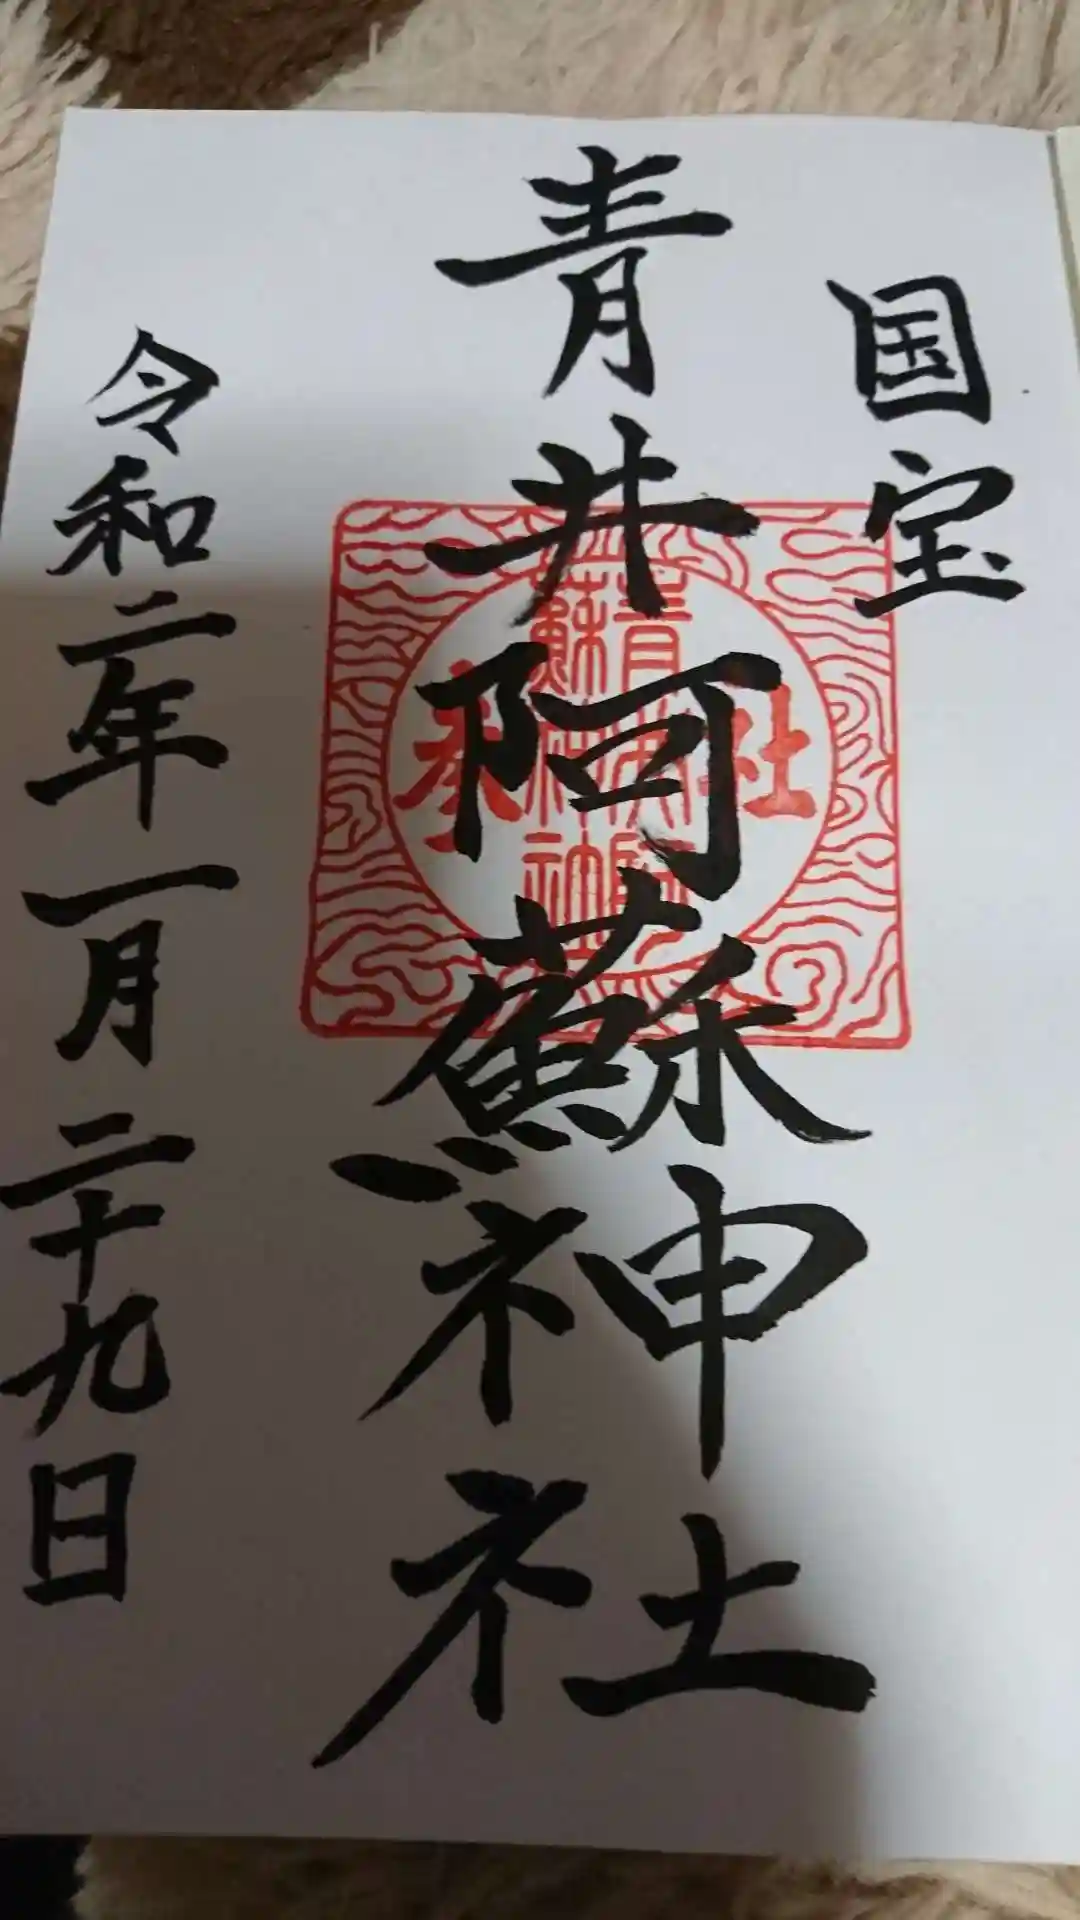 国宝
青井阿蘇神社
令和二年一月二十九日
青井阿
蘇神社